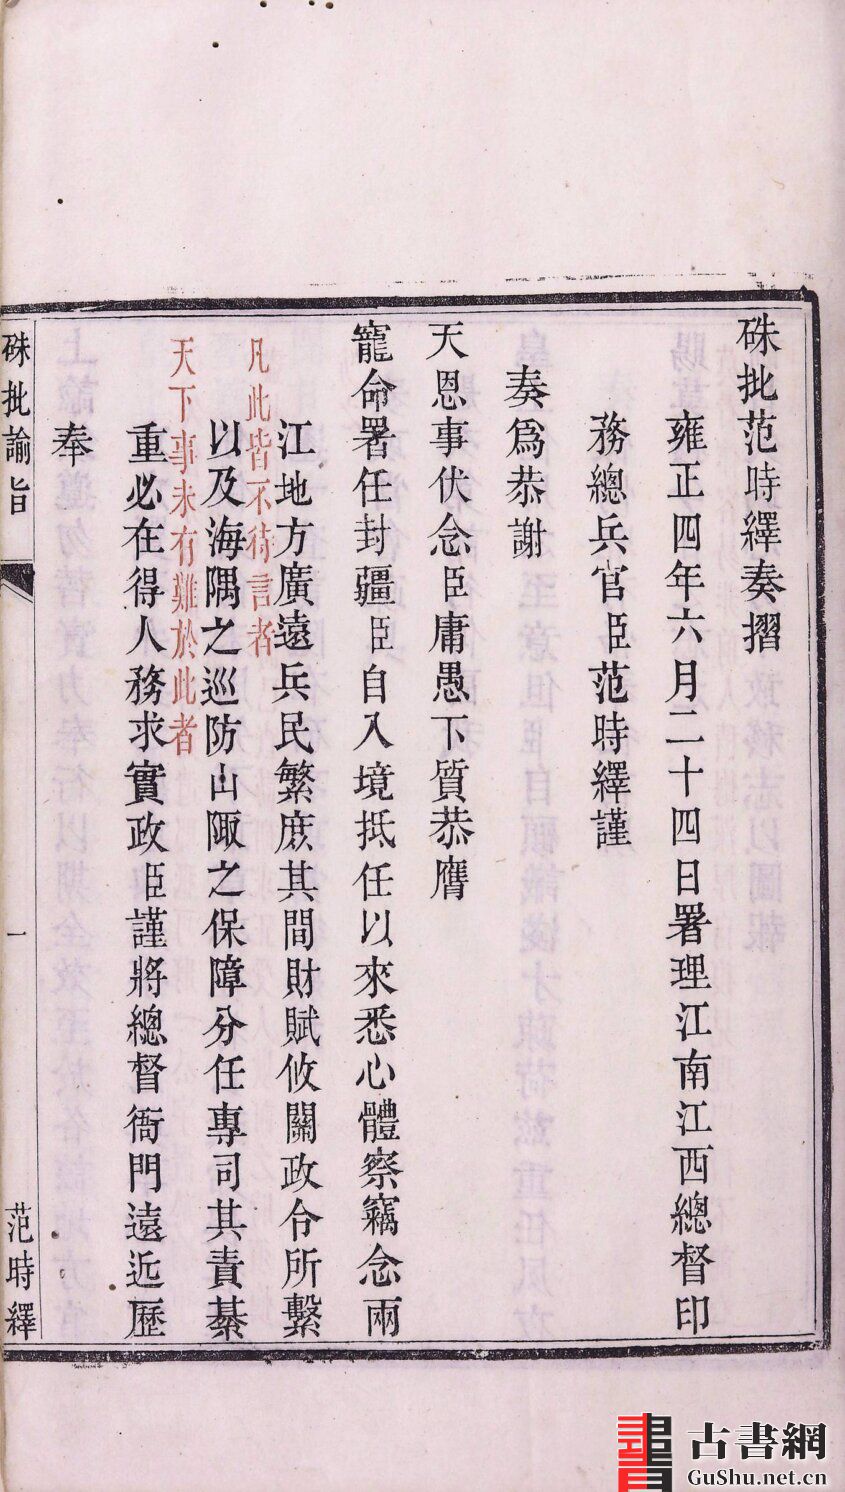 硃批范時繹奏摺
雍正四年六月二十四日署理江南江西總督印
務總兵官臣范時繹謹
奏爲恭謝
天恩事伏念臣庸愚下質恭膺
寵命署任封疆臣自入境抵任以來悉心體察竊念兩
江地方廣遠兵民繁庶其間財賦攸關政令所繫
凡此皆不待言者
以及海隅之巡防山陬之保障分任專司其責綦
天下事未有難於此者
重必在得人務求實政臣謹將總督衙門遠近歷
奉
硃批諭旨
一
范時繹
古書網
GuShu.net.cn